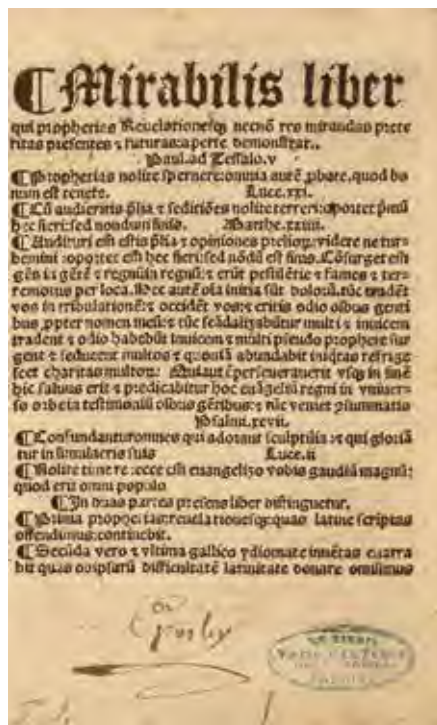 ¶Mirabilis liber
qui prophetias Reuelationesqꝫ necnõ res mirandas prete
ritas presentes ⁊ futuras: aperte demonstrat..
Paul. ad Tessalo. v
¶Prophetias nolite spernere: omnia autẽ ꝓbate. quod bo
num est tenete. Luce. xxi.
¶Cũ audieritis p̃lia ⁊ seditiões nolite terreri: oportet primũ
hec fieri: sed nondum finis. Matthe. xxiiii.
¶Audituri em̃ estis p̃lia ⁊ opiniones preliorum: videte ne tur-
bemini: oportet em̃ hec fieri: sed nõdũ est finis. Cõsurget em̃
gẽs in gẽtẽ ⁊ regnũ in regnũ: ⁊ erũt pestilẽtie ⁊ fames ⁊ ter-
remotus per loca. Hec autẽ oĩa initia sũt dolorũ. tũc tradẽt
vos in tribulationẽ: ⁊ occidẽt vos: ⁊ eritis odio oĩbus genti
bus ꝓpter nomen meũ: ⁊ tũc scãdalizabũtur multi ⁊ inuicem
tradent ⁊ odio habebũt inuicem ⁊ multi pseudo prophete sur
gent ⁊ seducent multos ⁊ quoniã abundabit iniqtas refrige
scet charitas multorum: Qui aut̃ perseuerauerit vsqꝫ in finẽ
hic saluus erit ⁊ predicabitur hoc euãgeliũ regni in vniuer-
so orbe in testimoniũ oĩbus gẽtibus: ⁊ tũc veniet ꝯsummatio
Psalmi. xcvii.
¶Confundantur omnes qui adorant sculptilia: ⁊ qui gloriã
tur in simulacris suis Luce. ii
¶Nolite timere: ecce em̃ euangelizo vobis gaudiũ magnũ:
quod erit omni populo
¶In duas partes presens liber distinguetur.
¶Prima prophetias reuelationesqꝫ: quas latine scriptas
offendimus: continebit.
¶Secũda vero ⁊ vltima gallico ydiomate inuẽtas enarra
bit quas ob ipsarũ difficultatẽ latinitate donare omisimus